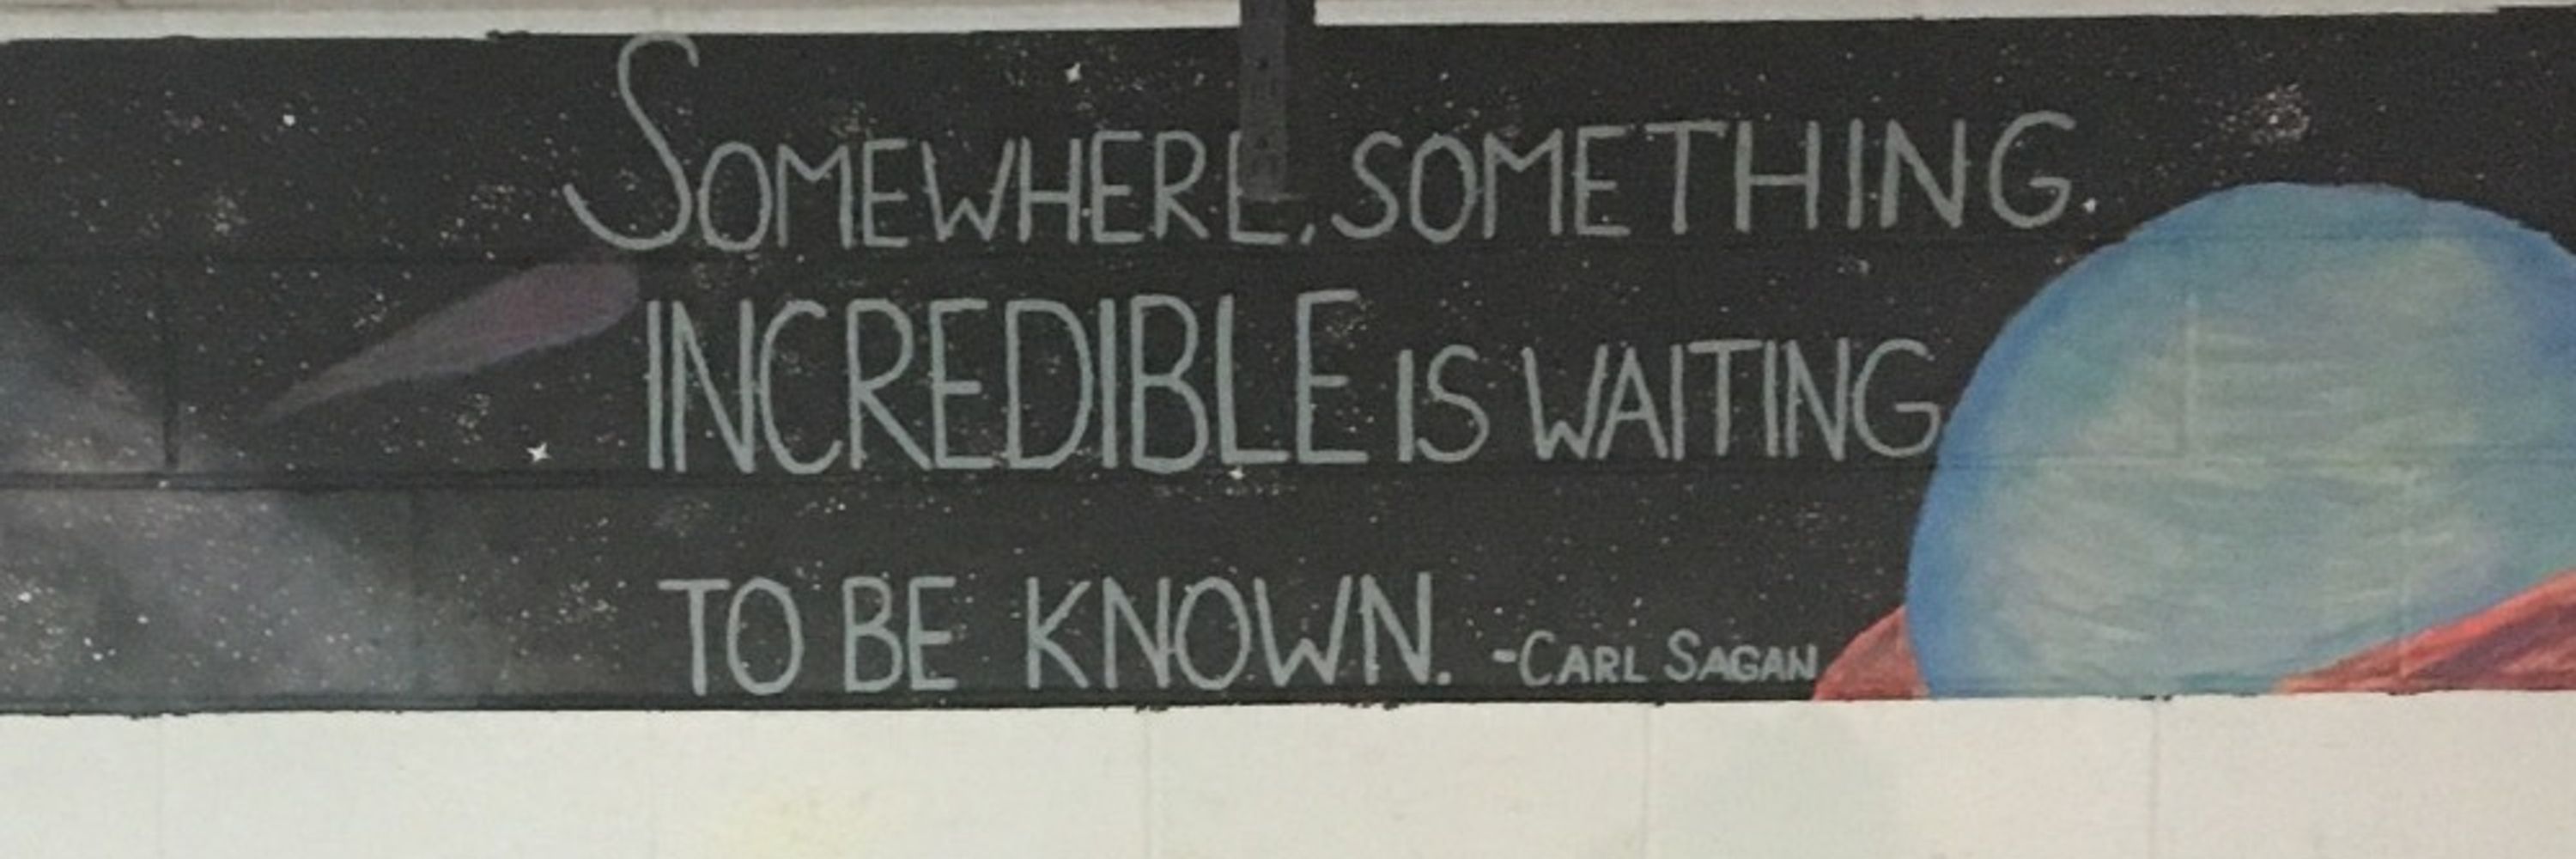 SOMEWHERE, SOMETHING
INCREDIBLE IS WAITING
TO BE KNOWN. -CARL SAGAN